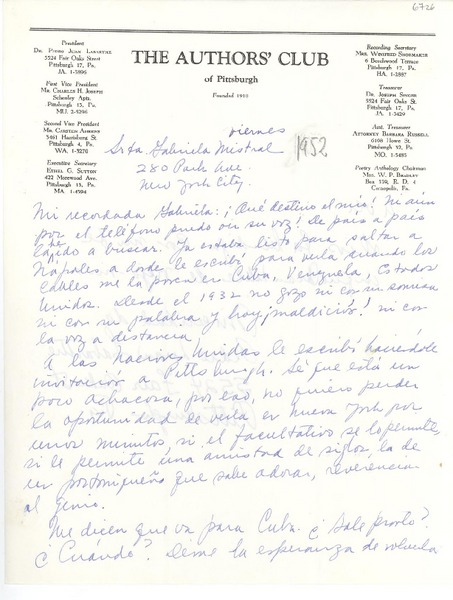 6726
President
Dr. Pedro Juan Labarthe
5524 Fair Oaks Street
Pittsburgh 17, Pa.
JA. 1-5906
First Vice President
Mr. Charles H. Joseph
Schenley Apts.
Pittsburgh 13, Pa.
MU. 2-4296
Second Vice President
Mr. Carsten Ahrens
Pittsburgh 4, Pa.
WA. 1-5270
Executive Secretary
Ethel G. Sutton
422 Morewood Ave.
Pittsburgh 13, Pa.
MA. 1-4594
THE AUTHORS' CLUB
of Pittsburgh
Founded 1910
Recording Secretary
Mrs. Winifred Shoemaker
6 Beechwood Terrace
Pittsburgh 17, Pa.
HA. 1-2887
Treasurer
Dr. Joseph Snyder
5824 Fair Oaks St.
Pittsburgh 17, Pa.
JA. 1-3429
Asst. Treasurer
Attorney Barbara Russell
Pittsburgh 19, Pa.
MO. 1-5485
Poetry Anthology Chairman
Mrs. W. P. Bradley
Box 119, R. D. 4
Coraopolis, Pa.
viernes
1952
Srta Gabriela Mistral
280 Park Ave.
New York City.
Mi recordada Gabriela: ¡Qué destino el mío! Ni aún
por el teléfono puedo oír su voz! De país a país
la he ido a buscar. Ya estaba listo para saltar a
Nápoles a donde le escribí para verla cuando los
cables me la ponen en Cuba, Venezuela, Estados
Unidos. Desde el 1932 no gozo ni con su sonrisa
ni con su palabra y hoy ¡maldición! ni con
la voz a distancia.
A las Naciones Unidas le escribí haciéndole
invitación a Pittsburgh. Sé que está un
poco achacosa, por eso, no quiero perder
la oportunidad de verla en Nueva York por
unos minutos si el facultativo se lo permite,
si le permite una amistad de siglos, la de
un portorriqueño que sabe adorar, reverenciar
al genio.
Me dicen que va para Cuba. ¿Sale pronto?
¿Cuándo? Deme la esperanza de volverla